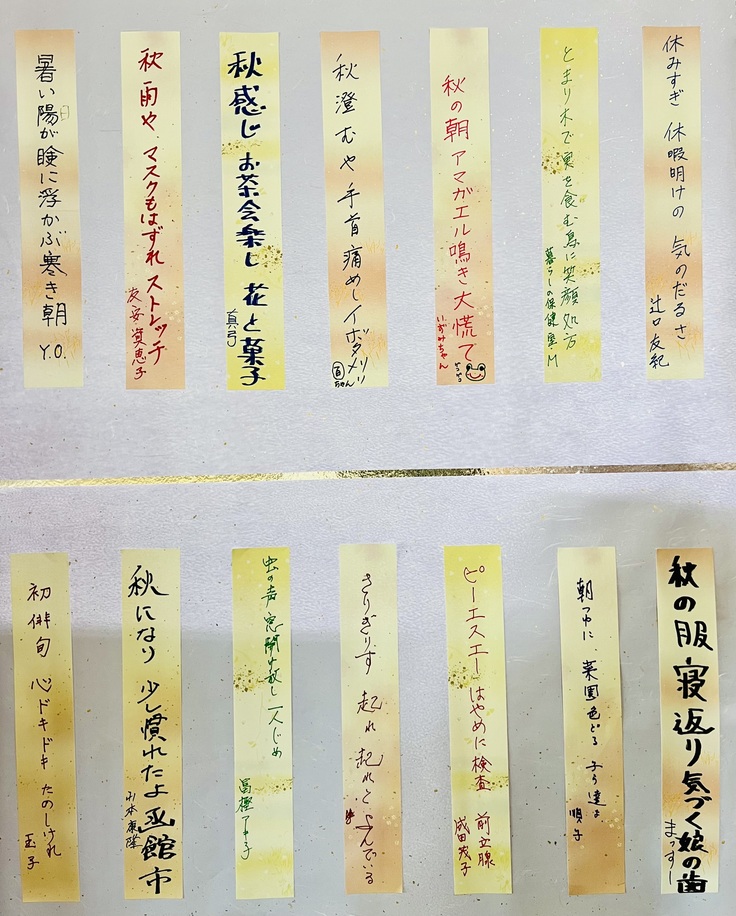 休みすぎ 休暇明けの 気のだるさ
辻口友紀
とまり木で 実を食む鳥に 笑顔処方
暮らしの保健室・M
秋の朝 アマガエル鳴き 大慌て
いずみちゃん
ケロケロ
秋澄むや 手首痛めし イボタメリリ
百ちゃん
秋感じ お茶会楽し 花と菓子
真弓
秋雨や マスクもはずれ ストレッチ
友安 資恵子
暑い陽が瞼に浮かぶ寒き朝
日
Y.O.
秋の服 寝返り気づく 娘の歯
まっすー
朝つゆに 菜園色どる 子ら達よ
順子
ピーエスエー はやめに検査 前立腺
成田茂子
きりぎりす 起れ 起れと よんでいる
虫の声 窓開け放し 一人じめ
秋になり 少し慣れたよ 函館市
山本康隆
初俳句 心ドキドキ たのしけれ
玉子